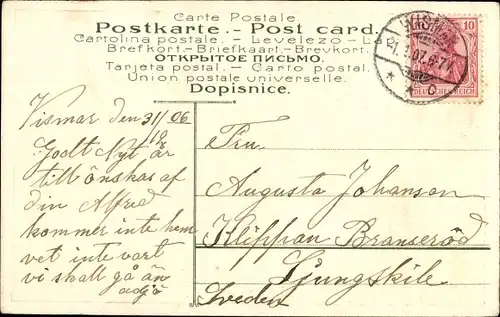 Carte Postale.
Postkarte.- Post card.
Cartolina postale.- Levelezo-L
Brefkort.-Briefkaart.-Brevkort.
ОТКРЫТОЕ ПИСЬМО.
Tarjeta postal.- Carto postal.
Union postale universelle.
Dopisnice.
10
DEUTSCHES REICH
WISMAR
1.1.07.6-7
Wismar den 31/12 06
Godt Nyt år
till önskas af
din Alfred
kommer inte hem
vet inte vart
vi skall gå än
adjö
Fru
Augusta Johanson
Klippan Branseröd
Ljungskile
Sveden